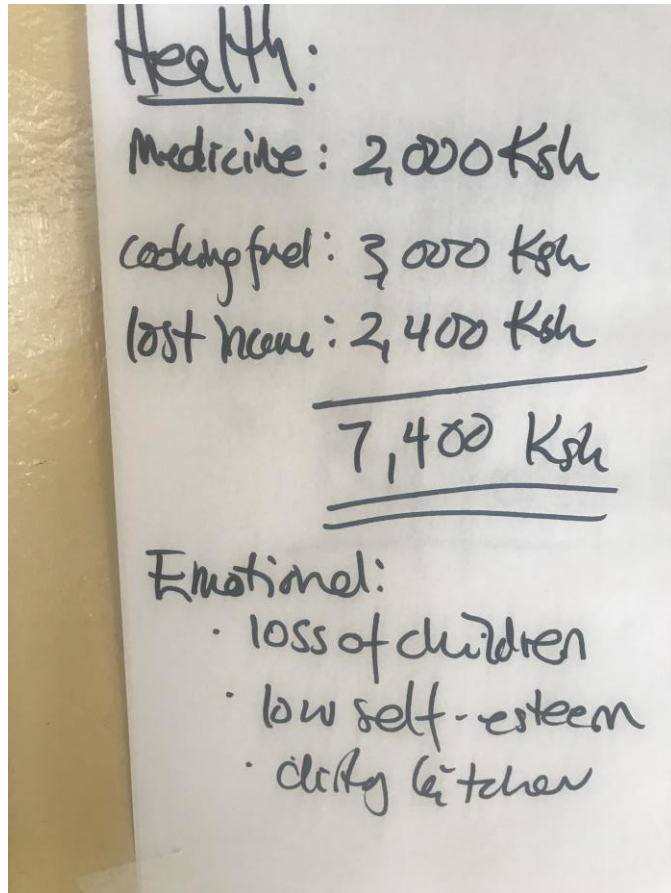 Health:
Medicine: 2,000 Ksh
cooking fuel: 3,000 Ksh
lost income: 2,400 Ksh
7,400 Ksh
Emotional:
· loss of children
· low self-esteem
· dirty kitchen